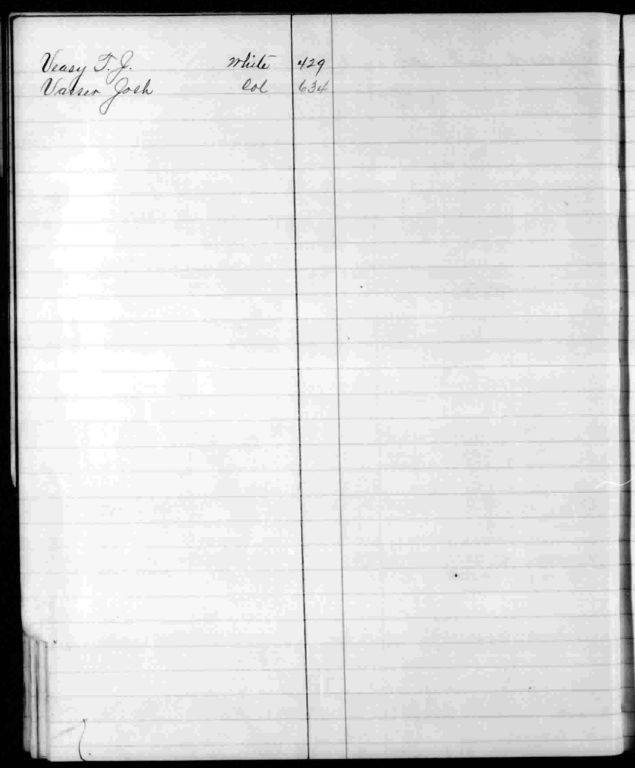 Veasy T. J. White 429
Vasser Josh Col 634